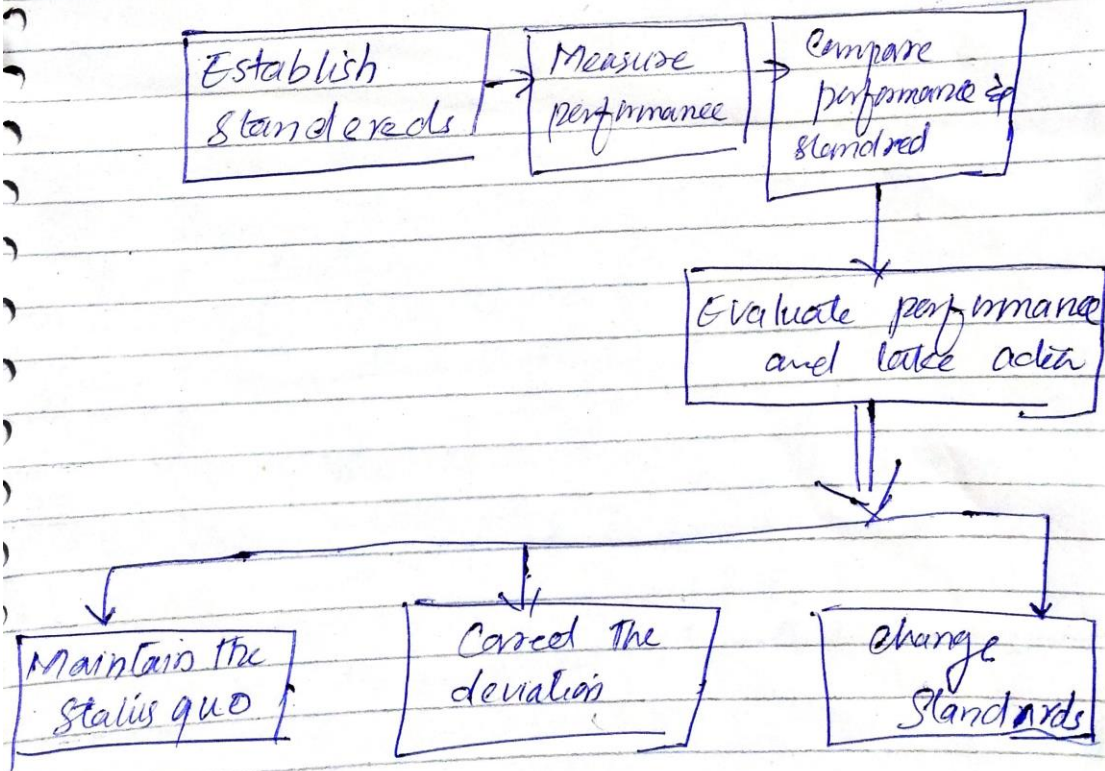 Establish
Standereds
Measure
performance
Compare
performance &
standred
Evaluate performance
and take action
Maintain the
Status quo
Correct the
deviation
Change
Standards